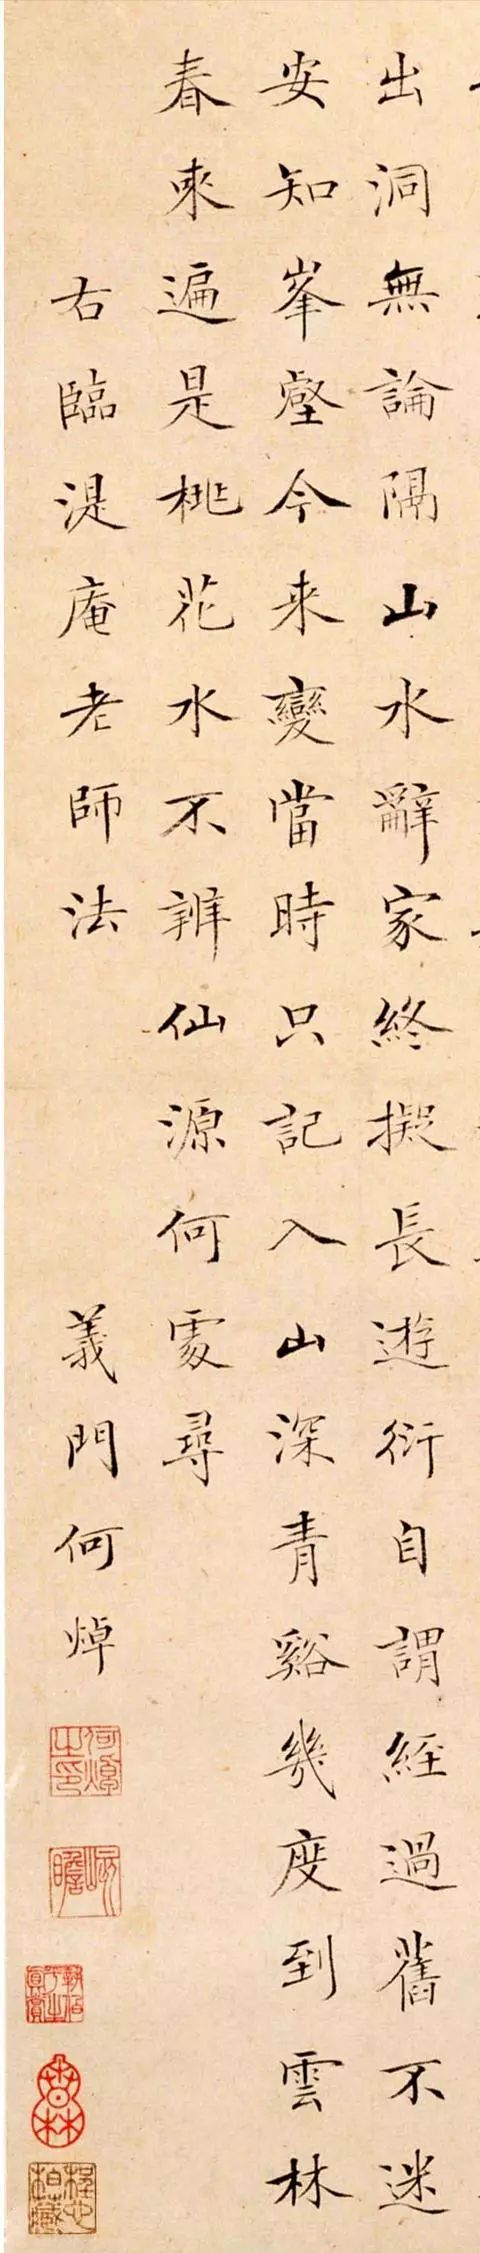 出洞無論隔山水辭家終擬長遊衍自謂經過舊不迷
安知峯壑今来變當時只記入山深青谿幾度到雲林
春来遍是桃花水不辨仙源何處尋
右臨湜庵老師法
義門何焯
何焯之印
屺瞻